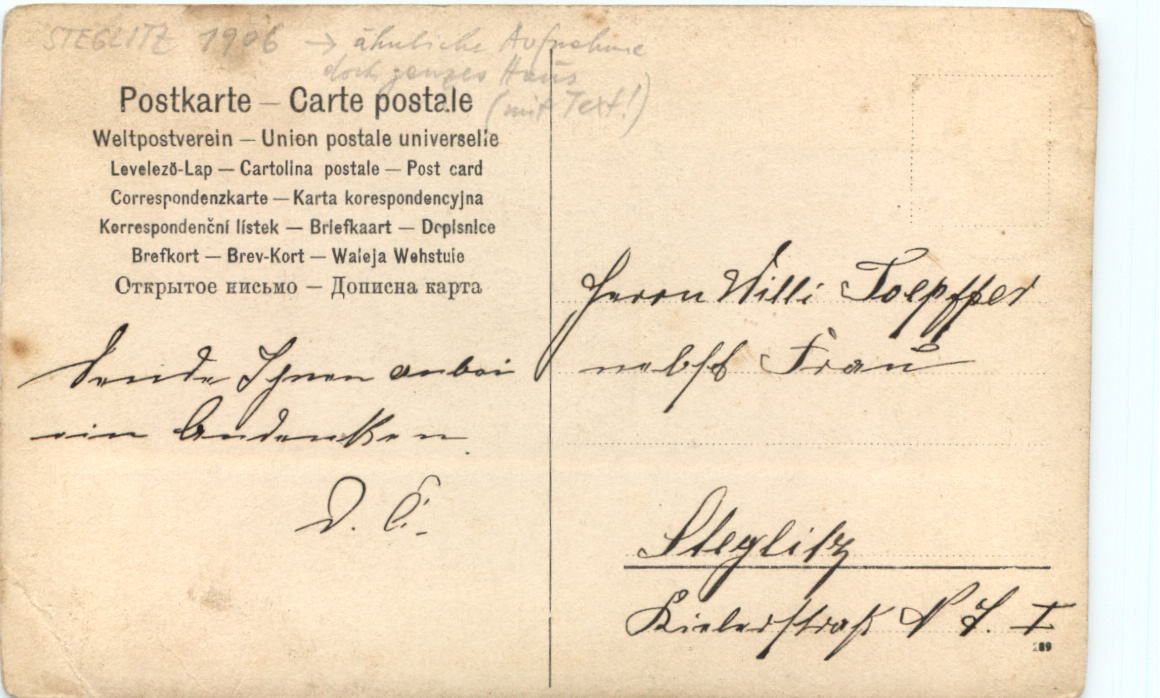 STEGLITZ 1906 → ähnliche Aufnahme
doch ganzes Haus
(mit Text!)
Postkarte — Carte postale
Weltpostverein — Union postale universelle
Levelező-Lap — Cartolina postale — Post card
Correspondenzkarte — Karta korespondencyjna
Korrespondenční lístek — Briefkaart — Dopisnice
Brefkort — Brev-Kort — Waleja Wehstule
Открытое письмо — Дописна карта
Sende Ihnen anbei
ein Andenken
Herrn Willi Toepffer
nebst Frau
Steglitz
Kielerstraß N I
289